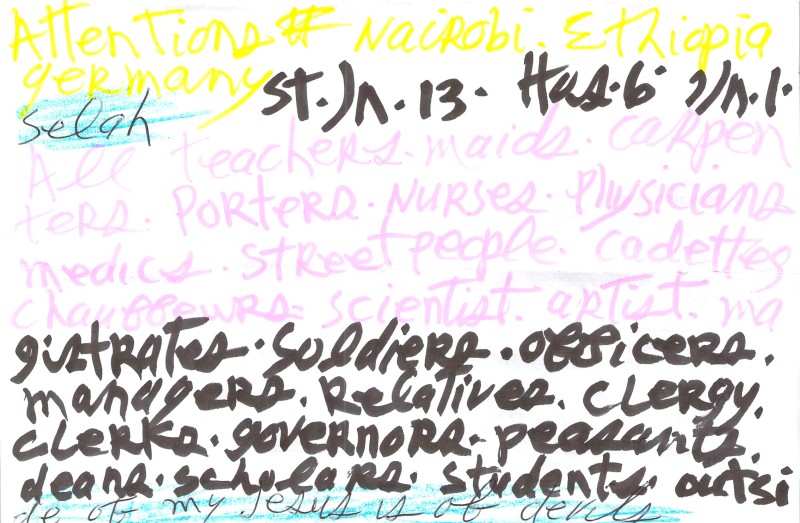 Attentions # Nairobi. Ethiopia
germany st. Jn. 13. Hus. 6 1Jn. 1.
selah
All teachers. maids. carpen
ters. porters. nurses. physicians
medics. street people. cadettes
chauffeurs. scientist. artist. ma
gistrates. soldiers. officers.
managers. Relatives. clergy.
clerks. governors. peasants.
deans. scholars. students. outsi
de of my Jesus is of devils